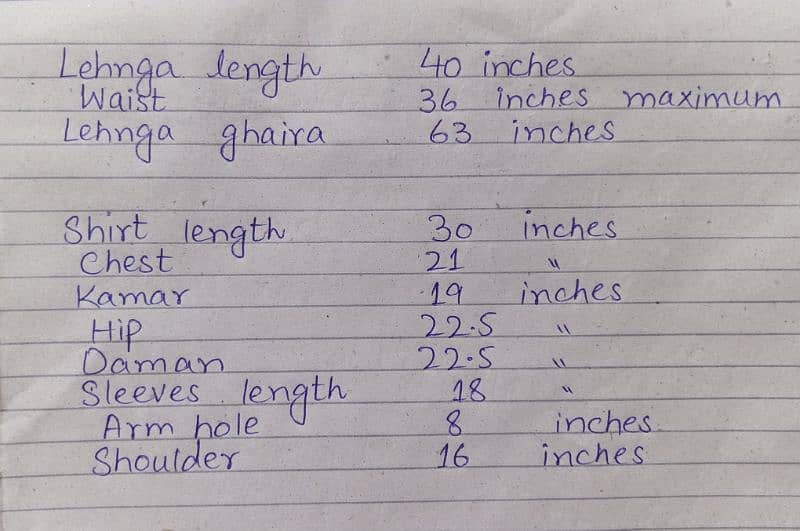 Lehnga length 40 inches
Waist 36 inches maximum
Lehnga ghaira 63 inches
Shirt length 30 inches
Chest 21 "
Kamar 19 inches
Hip 22.5 "
Daman 22.5 "
Sleeves length 18 "
Arm hole 8 inches
Shoulder 16 inches